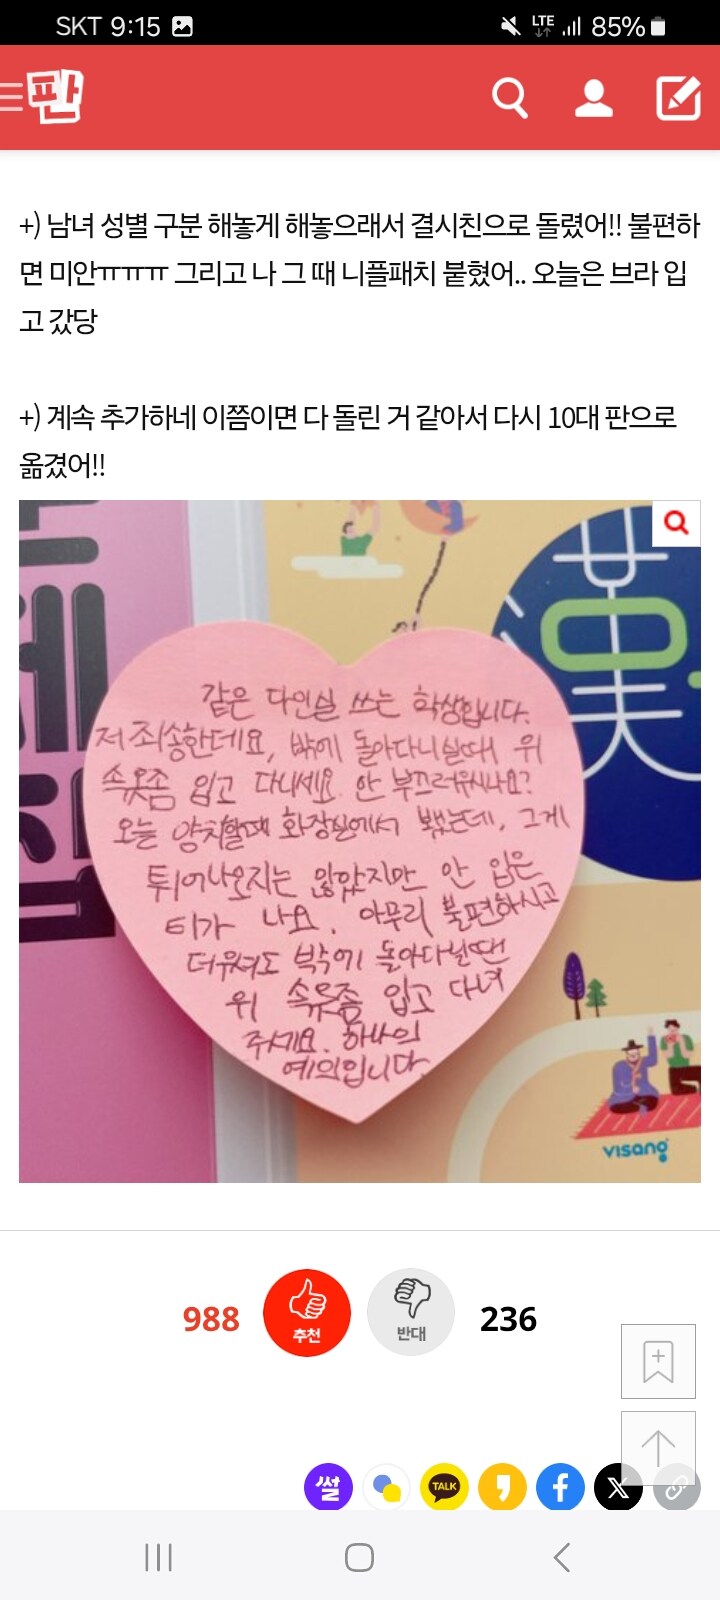 SKT 9:15 LTE 85%
판
+) 남녀 성별 구분 해놓게 해놓으래서 결시친으로 돌렸어!! 불편하
면 미안ㅠㅠㅠ 그리고 나 그 때 니플패치 붙혔어.. 오늘은 브라 입
고 갔당
+) 계속 추가하네 이쯤이면 다 돌린 거 같아서 다시 10대 판으로
옮겼어!!
漢
같은 다인실 쓰는 학생입니다.
저 죄송한데요, 밖에 돌아다니실때 위
속옷좀 입고 다니세요. 안 부끄러우시나요?
오늘 양치할때 화장실에서 봤는데, 그게
튀어나오지는 않았지만 안 입은
티가 나요. 아무리 불편하시고
더우셔도 밖에 돌아다닐땐
위 속옷좀 입고 다녀
주세요. 하나의
예의입니다.
visang
988 추천 반대 236
썰 TALK f X